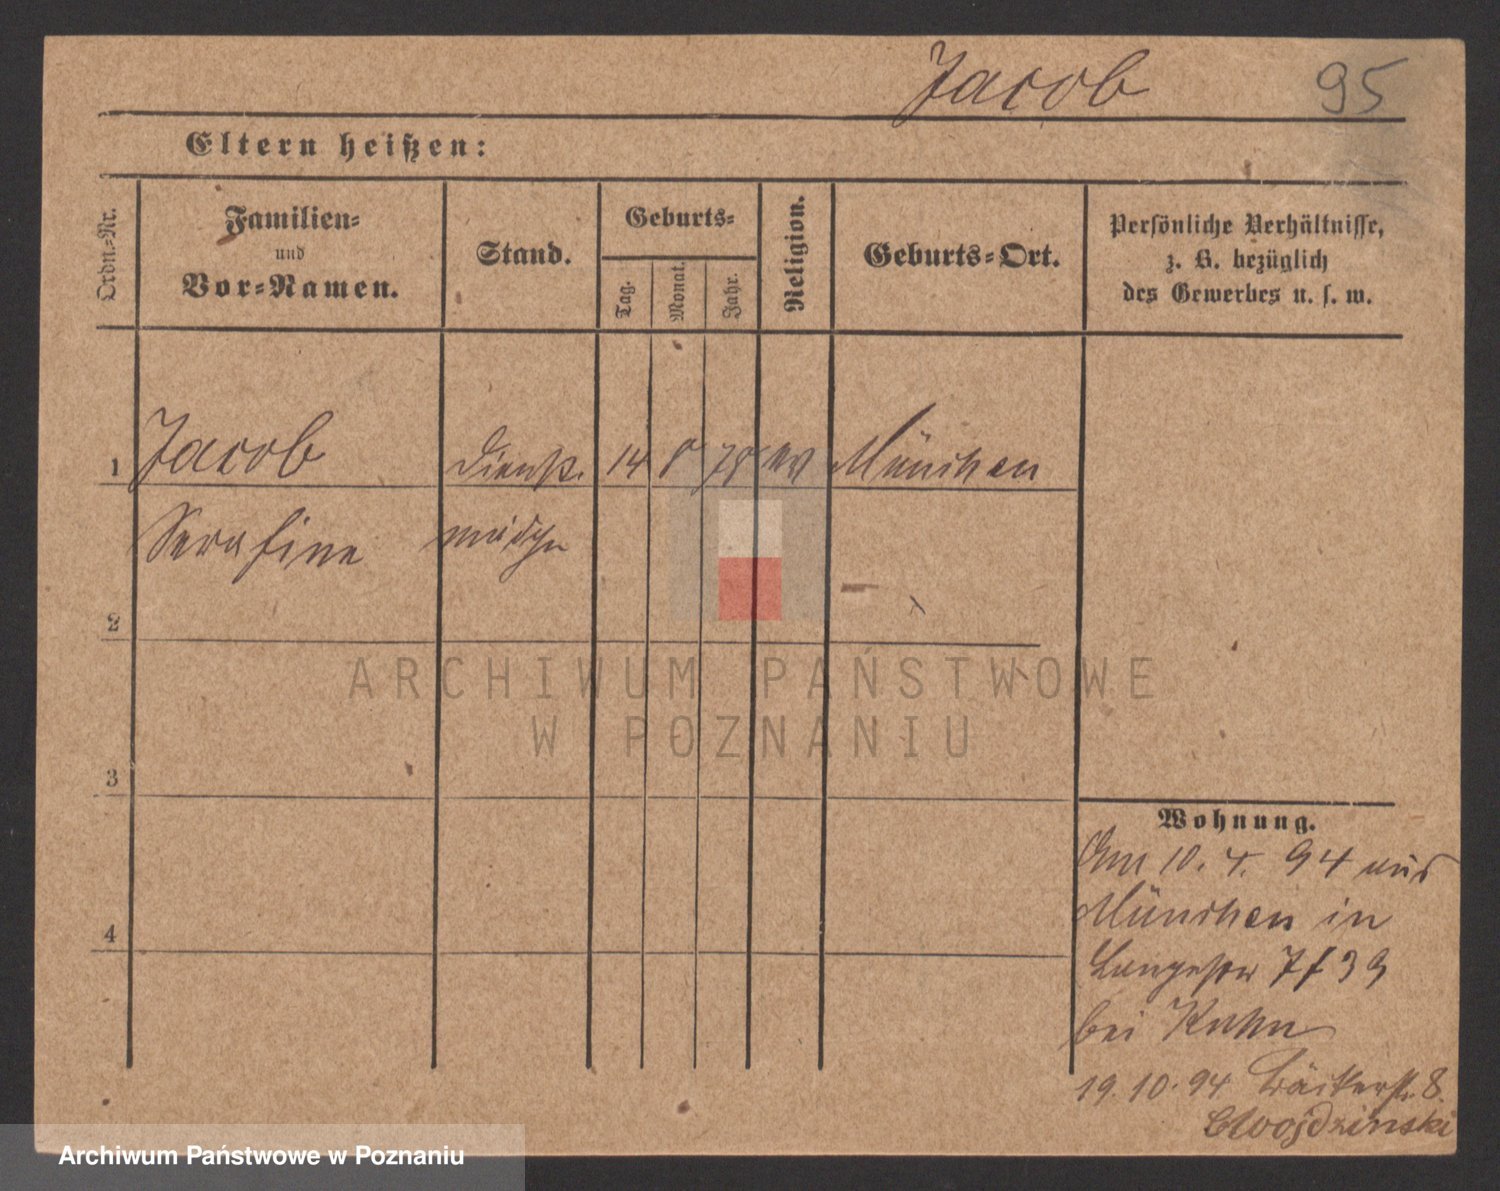 Jacob 95
Eltern heißen:
Ordn.-Nr.
Familien-
und
Vor-Namen.
Stand.
Geburts-
Tag.
Monat.
Jahr.
Religion.
Geburts-Ort.
Persönliche Verhältnisse,
z. B. bezüglich
des Gewerbes u. s. w.
1 Jacob Dienst. 14 8 78 ev München
Serafine mädch
2
3
4
Wohnung.
Am 10. 4. 94 aus
München in
Langestr 7 / 39
bei Kuhn
19.10.94 Bäckerstr. 8.
ARCHIWUM PAŃSTWOWE
W POZNANIU
Archiwum Państwowe w Poznaniu